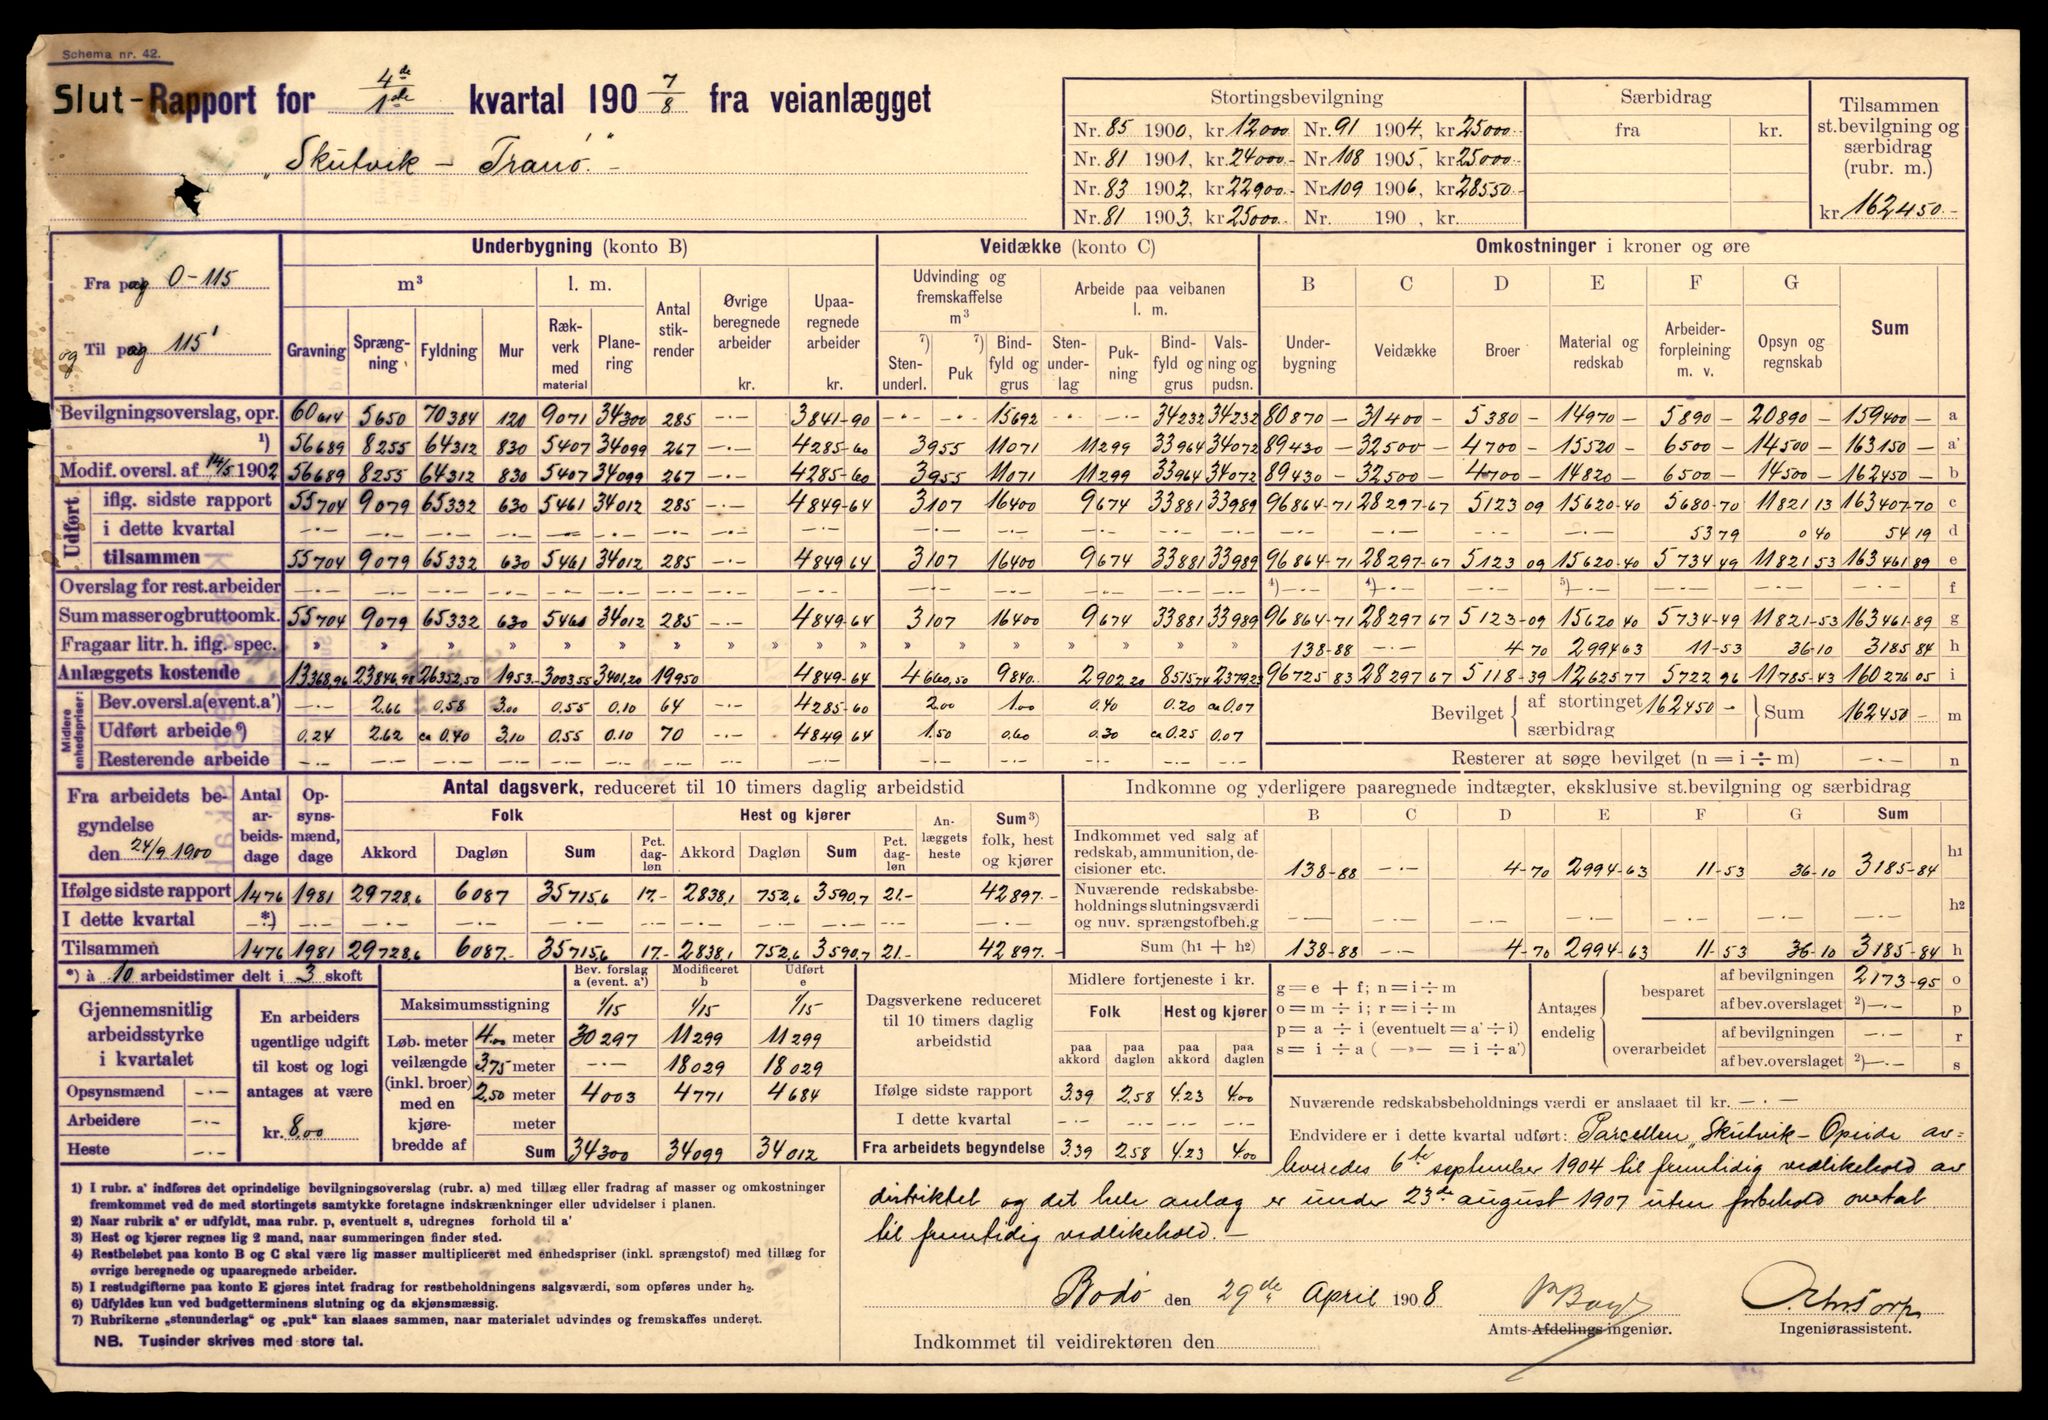 Schema nr. 42.
Slut-Rapport for 4de/1ste kvartal 190 7/8 fra veianlægget
"Skutvik – Tranö." –
Stortingsbevilgning
Nr. 85 1900, kr 12000 Nr. 91 1904, kr 25000
Nr. 81 1901, kr 24000.- Nr. 108 1905, kr 25000
Nr. 83 1902, kr 22900. Nr. 109 1906, kr 28550.-
Nr. 81 1903, kr 25000.- Nr. 190 , kr.
Særbidrag
fra kr.
Tilsammen
st.bevilgning og
særbidrag
(rubr. m.)
kr. 162450.-
Fra pag 0-115
og Til pag 115'
Underbygning (konto B)
m³ l. m.
Gravning Sprængning Fyldning Mur Rækverk med material Planering Antal stikrender Øvrige beregnede arbeider kr. Upaaregnede arbeider kr.
Veidække (konto C)
Udvinding og fremskaffelse m³ Arbeide paa veibanen l. m.
7) Stenunderl. 7) Puk Bindfyld og grus Stenunderlag Pukning Bindfyld og grus Valsning og pudsn.
Omkostninger i kroner og øre
B C D E F G Sum
Underbygning Veidække Broer Material og redskab Arbeiderforpleining m. v. Opsyn og regnskab
Bevilgningsoverslag, opr. 60614 5650 70384 120 9071 34300 285 -·- 3841-90 -·- -·- 15692 -·- -·- 34232 34232 80870 – 31400 – 5380 – 14970 – 5890 – 20890 – 159400 – a
1) 56689 8255 64312 830 5407 34099 267 -·- 4285-60 3955 11071 11299 33964 34072 89430 – 32500 – 4700 – 15520 – 6500 – 14500 – 163150 – a'
Modif. oversl. af 14/5 1902 56689 8255 64312 830 5407 34099 267 -·- 4285-60 3955 11071 11299 33964 34072 89430 – 32500 – 4700 – 14820 – 6500 – 14500 – 162450 – b
Udført
iflg. sidste rapport 55704 9079 65332 630 5461 34012 285 -·- 4849-64 3107 16400 9674 33881 33989 96864-71 28297-67 5123 09 15620-40 5680-70 11821 13 163407-70 c
i dette kvartal -·- -·- -·- -·- -·- -·- -·- -·- -·- -·- -·- -·- -·- -·- -·- -·- -·- -·- 53 79 0 40 54 19 d
tilsammen 55704 9079 65332 630 5461 34012 285 -·- 4849 64 3107 16400 9674 33881 33989 96864-71 28297-67 5123 09 15620-40 5734 49 11821 53 163461 89 e
Overslag for rest. arbeider -·- -·- -·- -·- -·- -·- -·- -·- -·- -·- -·- -·- -·- -·- 4)-·- 4)-·- -·- 5)-·- -·- -·- -·- f
Sum masser og bruttoomk. 55704 9079 65332 630 5461 34012 285 -·- 4849-64 3107 16400 9674 33881 33989 96864-71 28297 67 5123-09 15620 40 5734-49 11821-53 163461-89 g
Fragaar litr. h. iflg. spec. » » » » » » » » » » » » » » » » 138-88 -·- 4 70 2994 63 11-53 36-10 3185 84 h
Anlæggets kostende 13368,96 23846,98 26352,50 1953.- 3003,55 3401,20 19950 4849-64 4660,50 9840.- 2902,20 8515,74 2379,23 96725 83 28297 67 5118-39 12625 77 5722 96 11785-43 160276 05 i
Midlere enhedspriser:
Bev. oversl. a (event. a') -·- 2.66 0.58 3.00 0.55 0.10 64 -·- 4285-60 2.00 1.00 0.40 0.20 ca 0.07
Udført arbeide 6) 0.24 2.62 ca 0.40 3.10 0.55 0.10 70 -·- 4849 64 1.50 0.60 0.30 ca 0.25 0.07
Resterende arbeide -·- -·- -·- -·- -·- -·- -·- -·- -·- -·- -·- -·- -·- -·-
Bevilget af stortinget 162450 – Sum 162450 – m
særbidrag
Resterer at søge bevilget (n = i ÷ m) -·- n
Fra arbeidets begyndelse
den 24/9 1900
Antal arbeidsdage Opsynsmænd, dage
Antal dagsverk, reduceret til 10 timers daglig arbeidstid
Folk Hest og kjører Anlæggets heste Sum 3) folk, hest og kjører
Akkord Dagløn Sum Pct. dagløn Akkord Dagløn Sum Pct. dagløn
Ifølge sidste rapport 1476 1981 29728,6 6087 35715,6 17.- 2838,1 752,6 3590,7 21.- 42897.-
I dette kvartal -*)- -·- -·- -·- -·- -·- -·- -·- -·- -·- -·-
Tilsammen 1476 1981 29728,6 6087.- 35715,6 17.- 2838,1 752,6 3590,7 21.- 42897.-
Indkomne og yderligere paaregnede indtægter, eksklusive st.bevilgning og særbidrag
B C D E F G Sum
Indkommet ved salg af
redskab, ammunition, decisioner
etc. 138-88 -·- 4-70 2994-63 11-53 36-10 3185-84 h1
Nuværende redskabsbeholdnings
slutningsværdi
og nuv. sprængstofbeh.g -·- -·- -·- -·- -·- -·- -·- h2
Sum (h1 + h2) 138-88 -·- 4-70 2994-63 11-53 36-10 3185-84 h
*) à 10 arbeidstimer delt i 3 skoft
Gjennemsnitlig
arbeidsstyrke
i kvartalet
Opsynsmænd -·-
Arbeidere -·-
Heste -·-
En arbeiders
ugentlige udgift
til kost og logi
antages at være
kr. 8.00
Bev. forslag a (event. a') Modificeret b Udført e
Maksimumsstigning 1/15 1/15 1/15
Løb. meter veilængde (inkl. broer) med en kjørebredde af
4.00 meter 30297 11299 11299
3.75 meter -·- 18029 18029
2.50 meter 4003 4771 4684
meter
Sum 34300 34099 34012
Dagsverkene reduceret
til 10 timers daglig
arbeidstid
Midlere fortjeneste i kr.
Folk Hest og kjører
paa akkord paa dagløn paa akkord paa dagløn
Ifølge sidste rapport 3.39 2.58 4.23 4.00
I dette kvartal -·- -·- -·- -·-
Fra arbeidets begyndelse 3.39 2.58 4.23 4.00
g = e + f; n = i ÷ m
o = m ÷ i; r = i ÷ m
p = a ÷ i (eventuelt = a' ÷ i)
s = i ÷ a ( —»— = i ÷ a')
Antages endelig
besparet af bevilgningen 2173-95 o
af bev.overslaget 2) -·- p
overarbeidet af bevilgningen -·- r
af bev.overslaget 2) -·- s
Nuværende redskabsbeholdnings værdi er anslaaet til kr. – · –
Endvidere er i dette kvartal udført: Parcellen "Skutvik – Opeide av=
leveredes 6te september 1904 til fremtidig vedlikehold av
distriktet og det hele anlæg er under 23de august 1907 uten forbehold overtat
til fremtidig vedlikehold. –
Bodø den 29de April 1908
Amts-Afdelingsingeniør.
Ingeniørassistent.
Indkommet til veidirektøren den
1) I rubr. a' indføres det oprindelige bevilgningsoverslag (rubr. a) med tillæg eller fradrag af masser og omkostninger
fremkommet ved de med stortingets samtykke foretagne indskrænkninger eller udvidelser i planen.
2) Naar rubrik a' er udfyldt, maa rubr. p, eventuelt s, udregnes forhold til a'
3) Hest og kjører regnes lig 2 mand, naar summeringen finder sted.
4) Restbeløbet paa konto B og C skal være lig masser multipliceret med enhedspriser (inkl. sprængstof) med tillæg for
øvrige beregnede og upaaregnede arbeider.
5) I restudgifterne paa konto E gjøres intet fradrag for restbeholdningens salgsværdi, som opføres under h2.
6) Udfyldes kun ved budgetterminens slutning og da skjønsmæssig.
7) Rubrikerne „stenunderlag" og „puk" kan slaaes sammen, naar materialet udvindes og fremskaffes underet.
NB. Tusinder skrives med store tal.